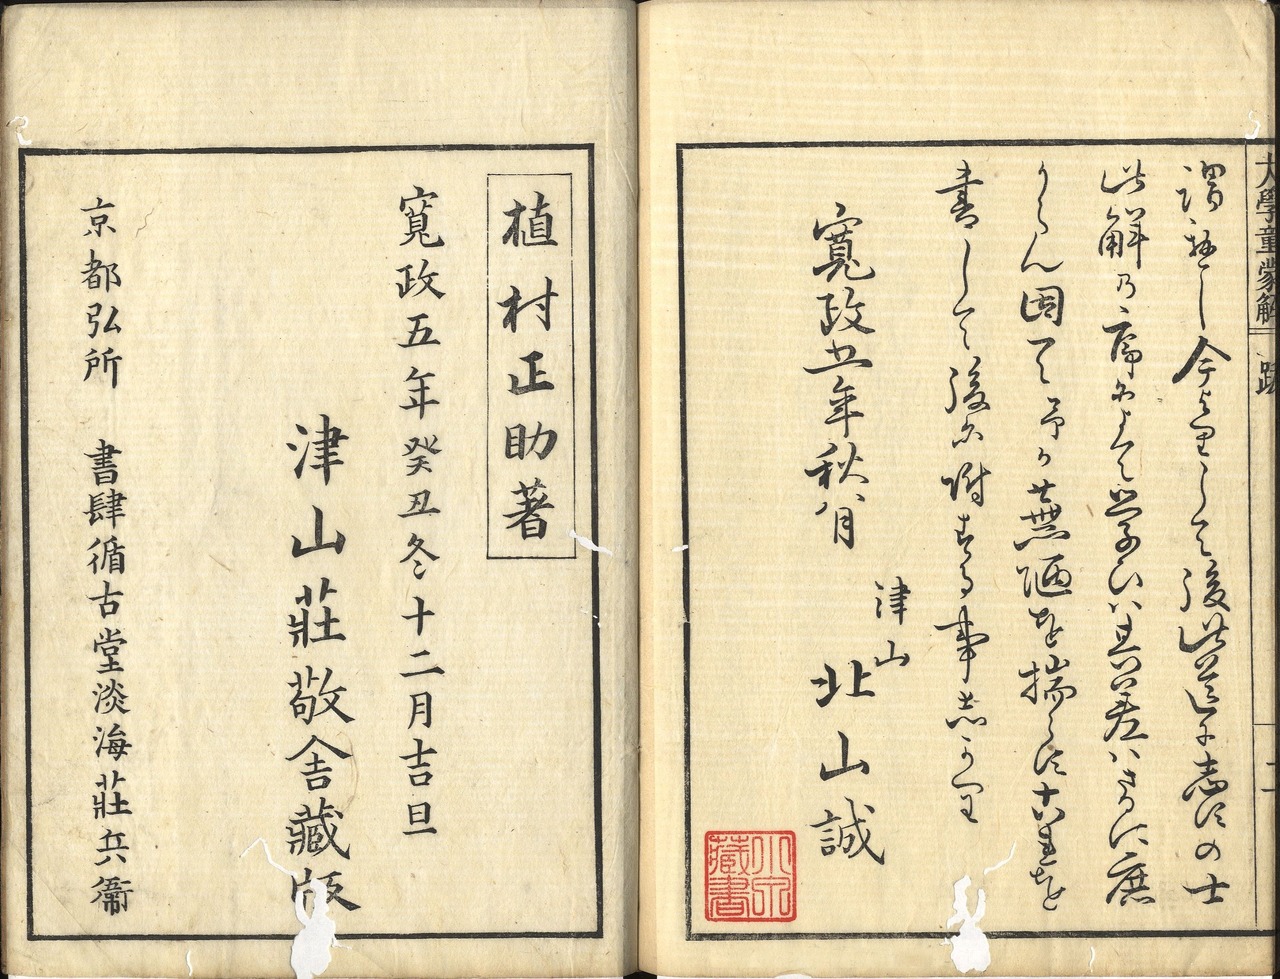 大學童蒙解 跋 二
謂へし今よりして後此道に志すの士
此解乃序によりて学ひハ其差ハさるに庶
からん因て予か蕪陋を揣らすこれを
書して後に附する事志かり
寬政五年秋八月
津山 北山誠
藏書
植村正助著
寬政五年癸丑冬十二月吉旦
津山莊敬舎藏版
京都弘所 書肆循古堂淡海莊兵衞